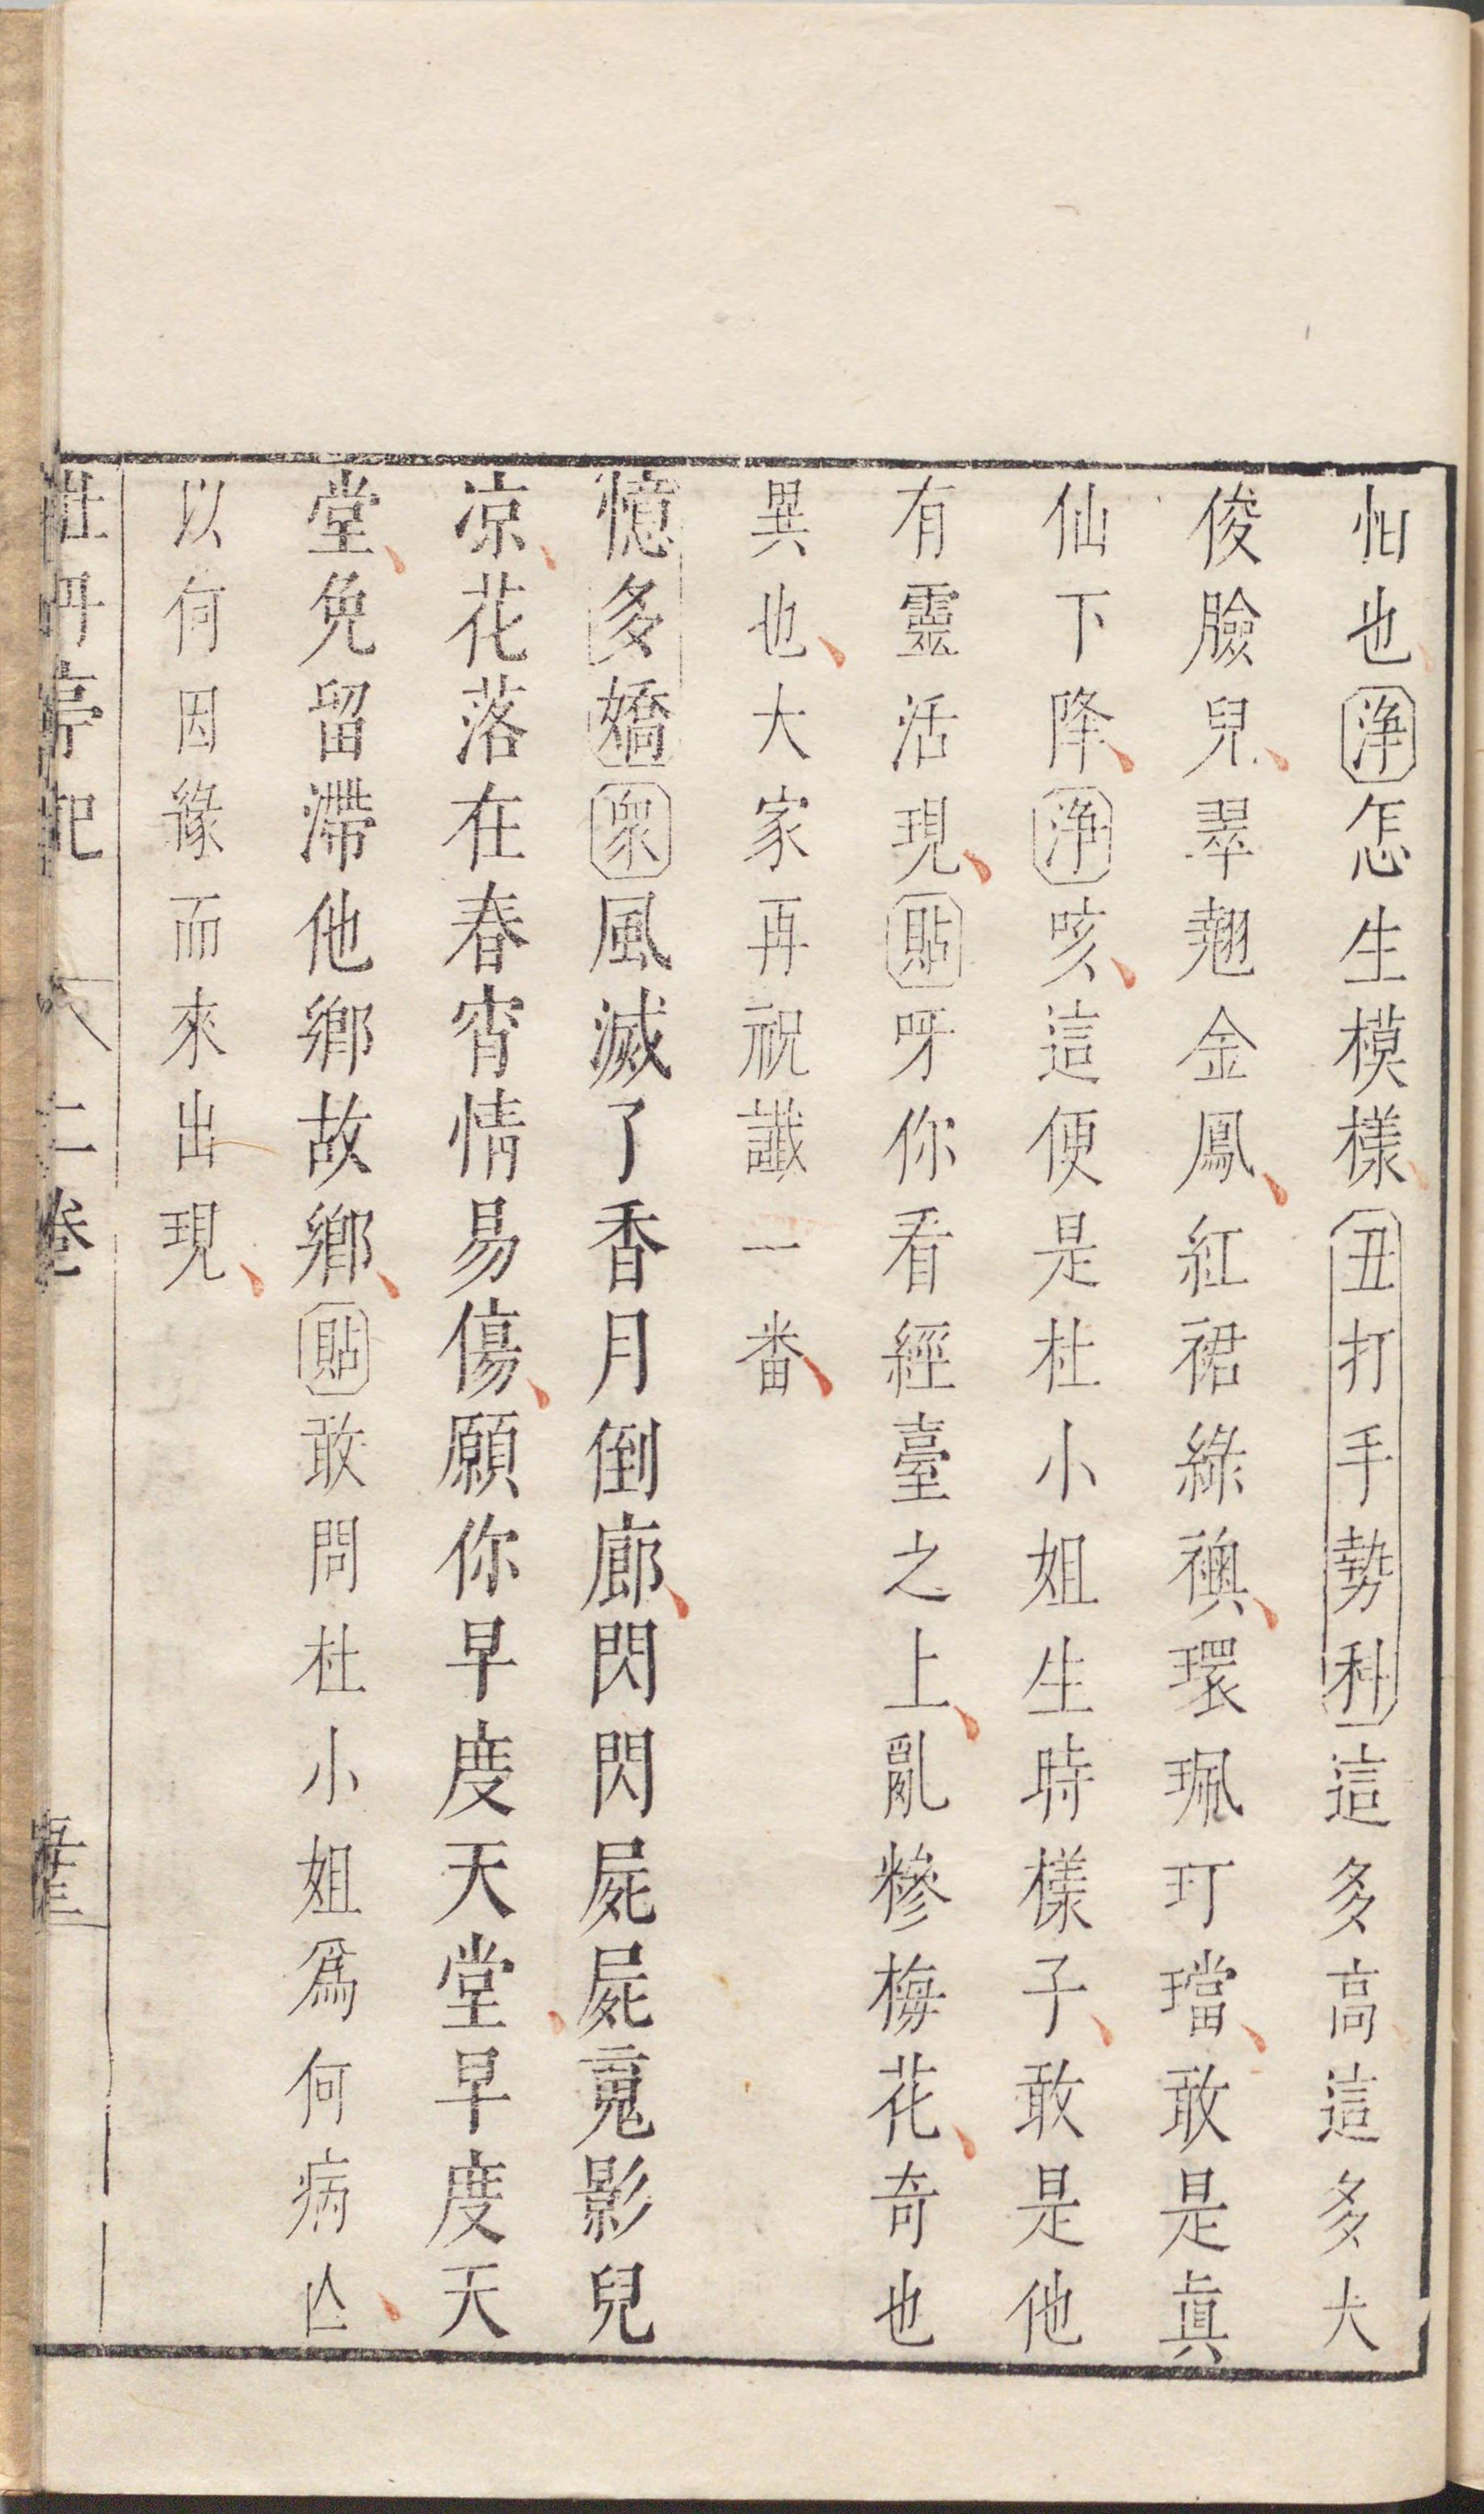 怕也淨怎生模樣丑打手勢科這多高這多大
俊臉兒翠翹金鳳紅裙綠襖環珮玎璫敢是真
仙下降淨咳這便是杜小姐生時樣子敢是他
有靈活現貼呀你看經臺之上亂糝梅花奇也
異也大家再祝讖一番
憶多嬌眾風滅了香月倒廊閃閃屍屍䰟影兒
凉花落在春宵情易傷願你早度天堂早度天
堂免留滯他鄉故鄉貼敢問杜小姐爲何病亾
以何因緣而來出現
牡丹亭記 二卷